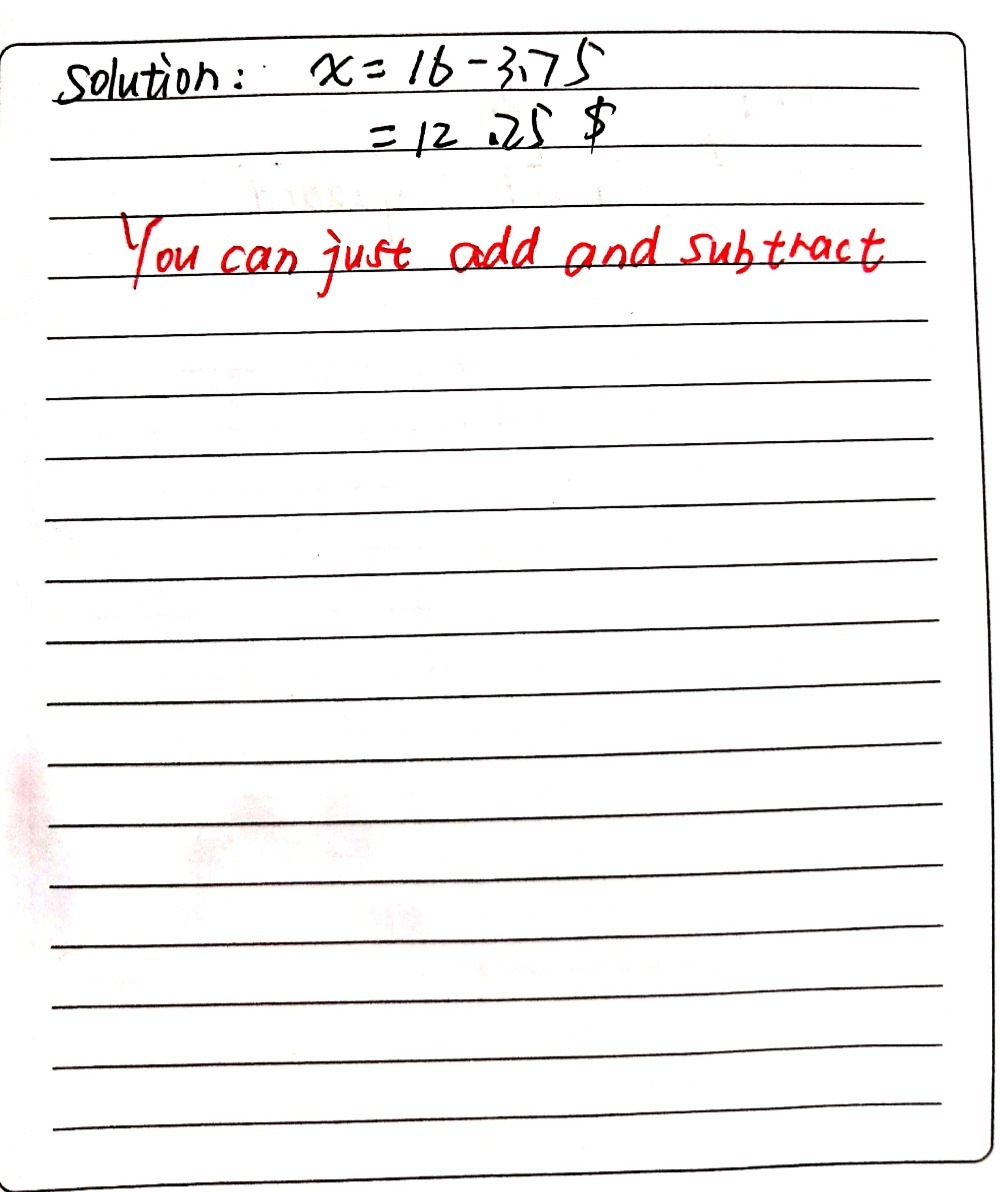 Solution: x = 16 - 3.75
= 12.25 $
You can just add and subtract